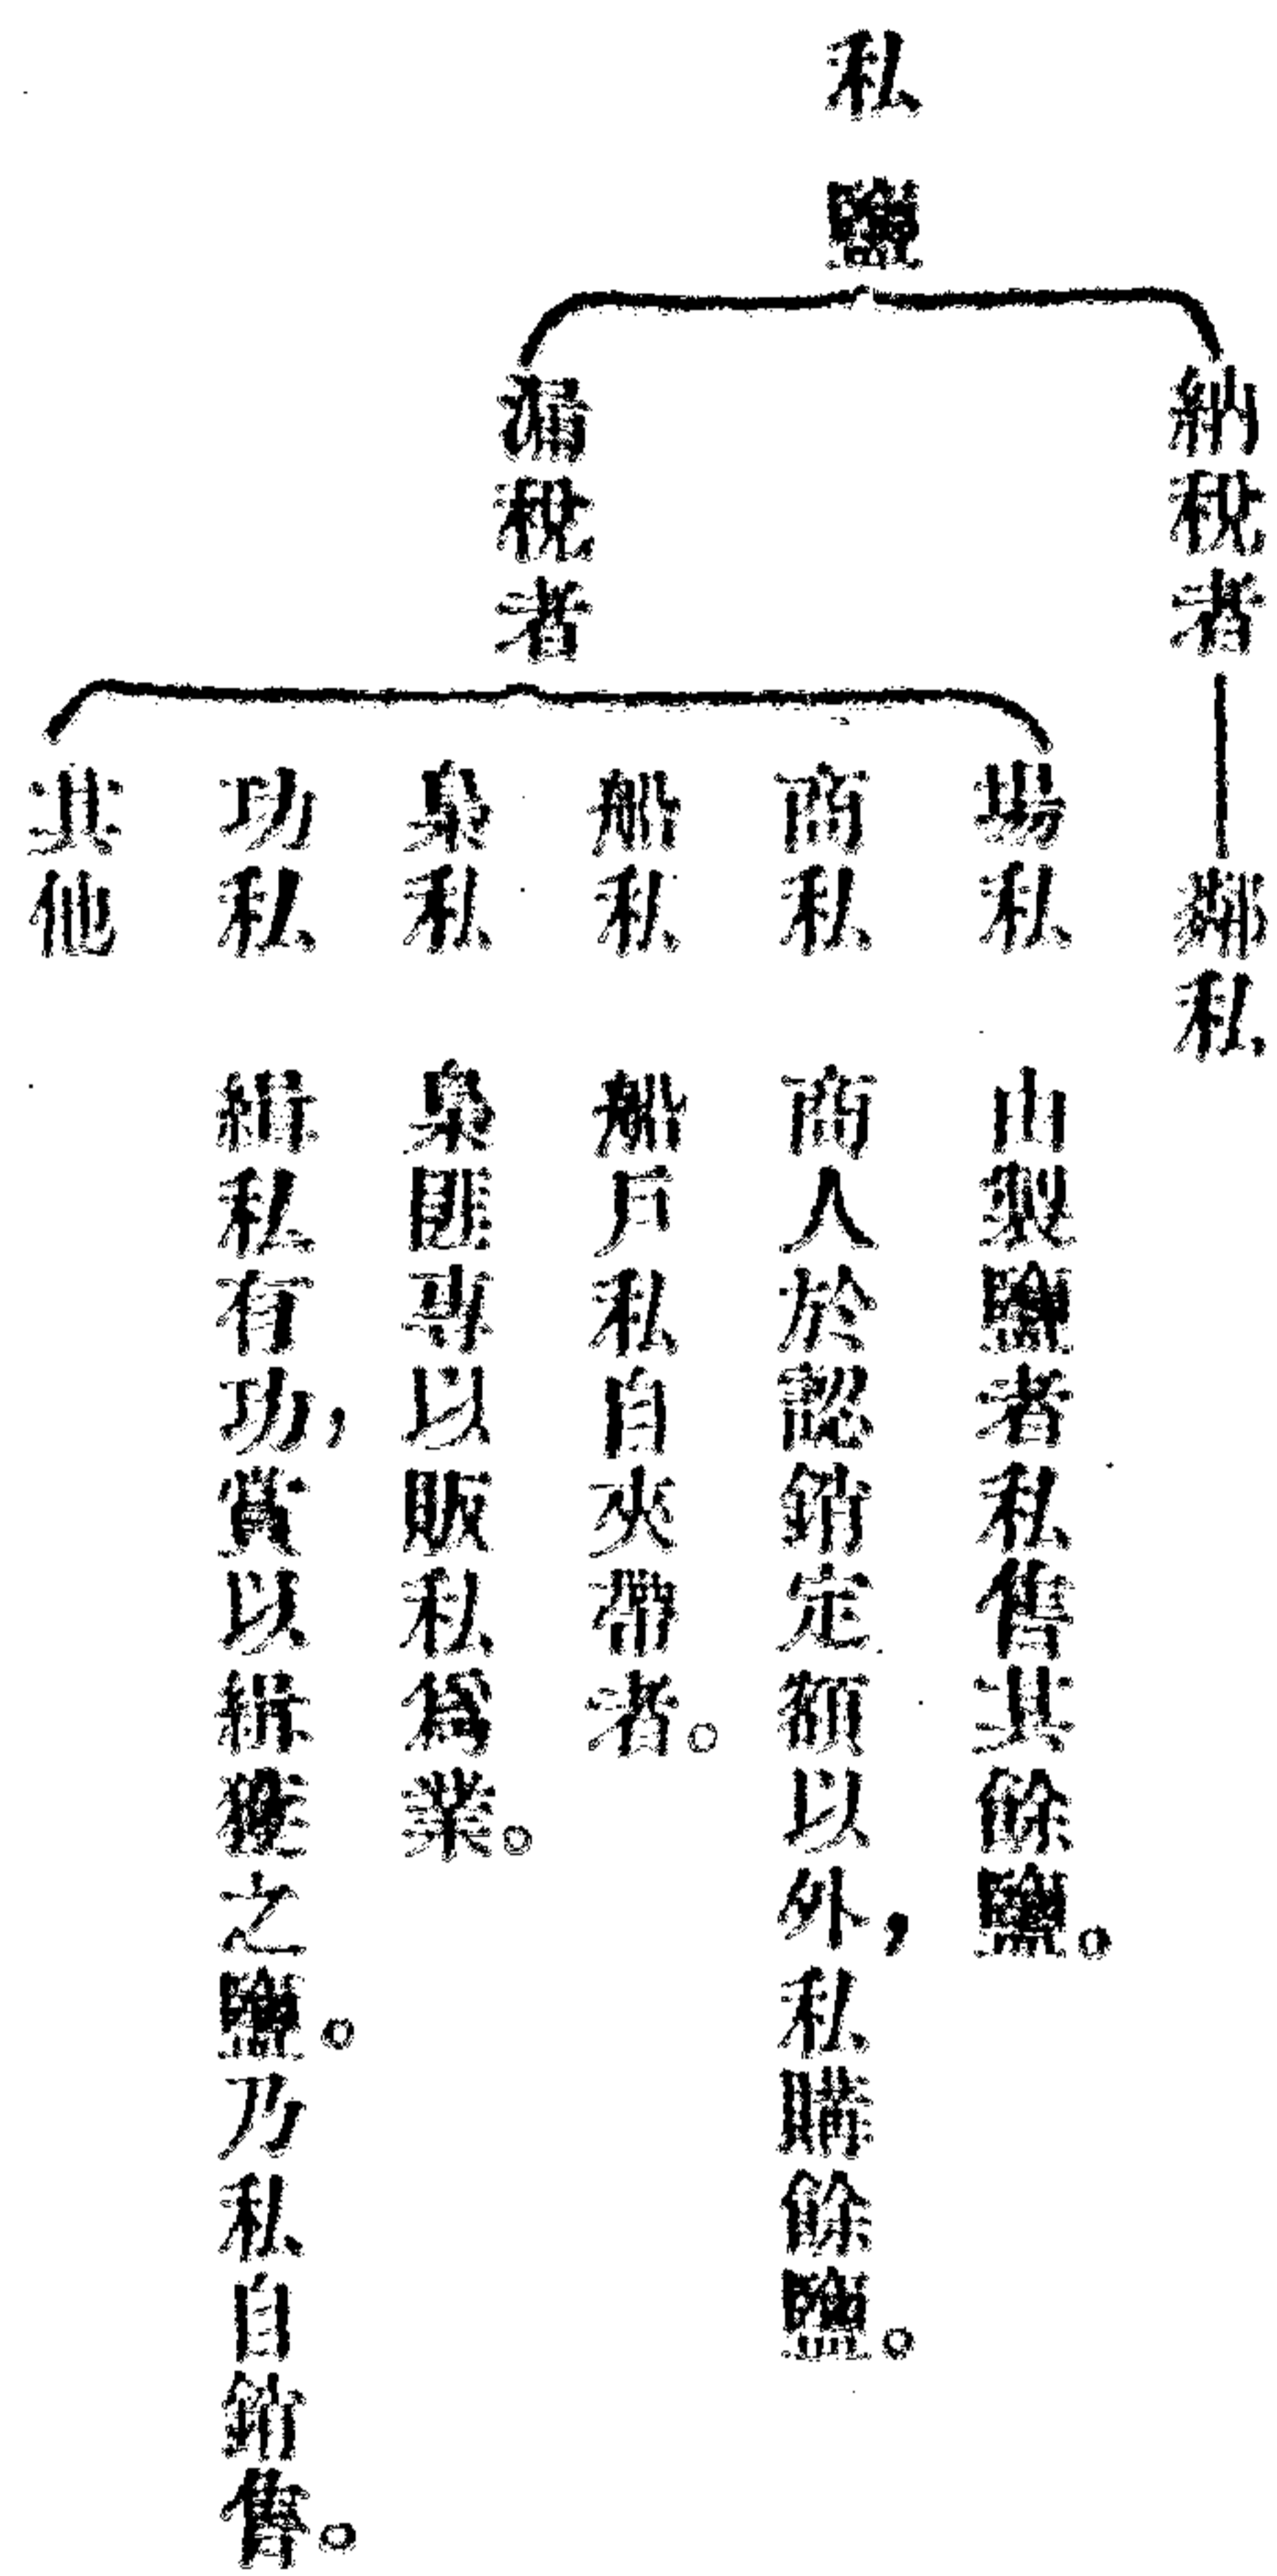 私鹽
納稅者
鄰私
漏稅者
場私
由製鹽者私售其餘鹽。
商私
商人於認銷定額以外，私購餘鹽。
船私
船戶私自夾帶者。
梟私
梟匪專以販私爲業。
功私
緝私有功，賞以緝獲之鹽。乃私自銷售。
其他